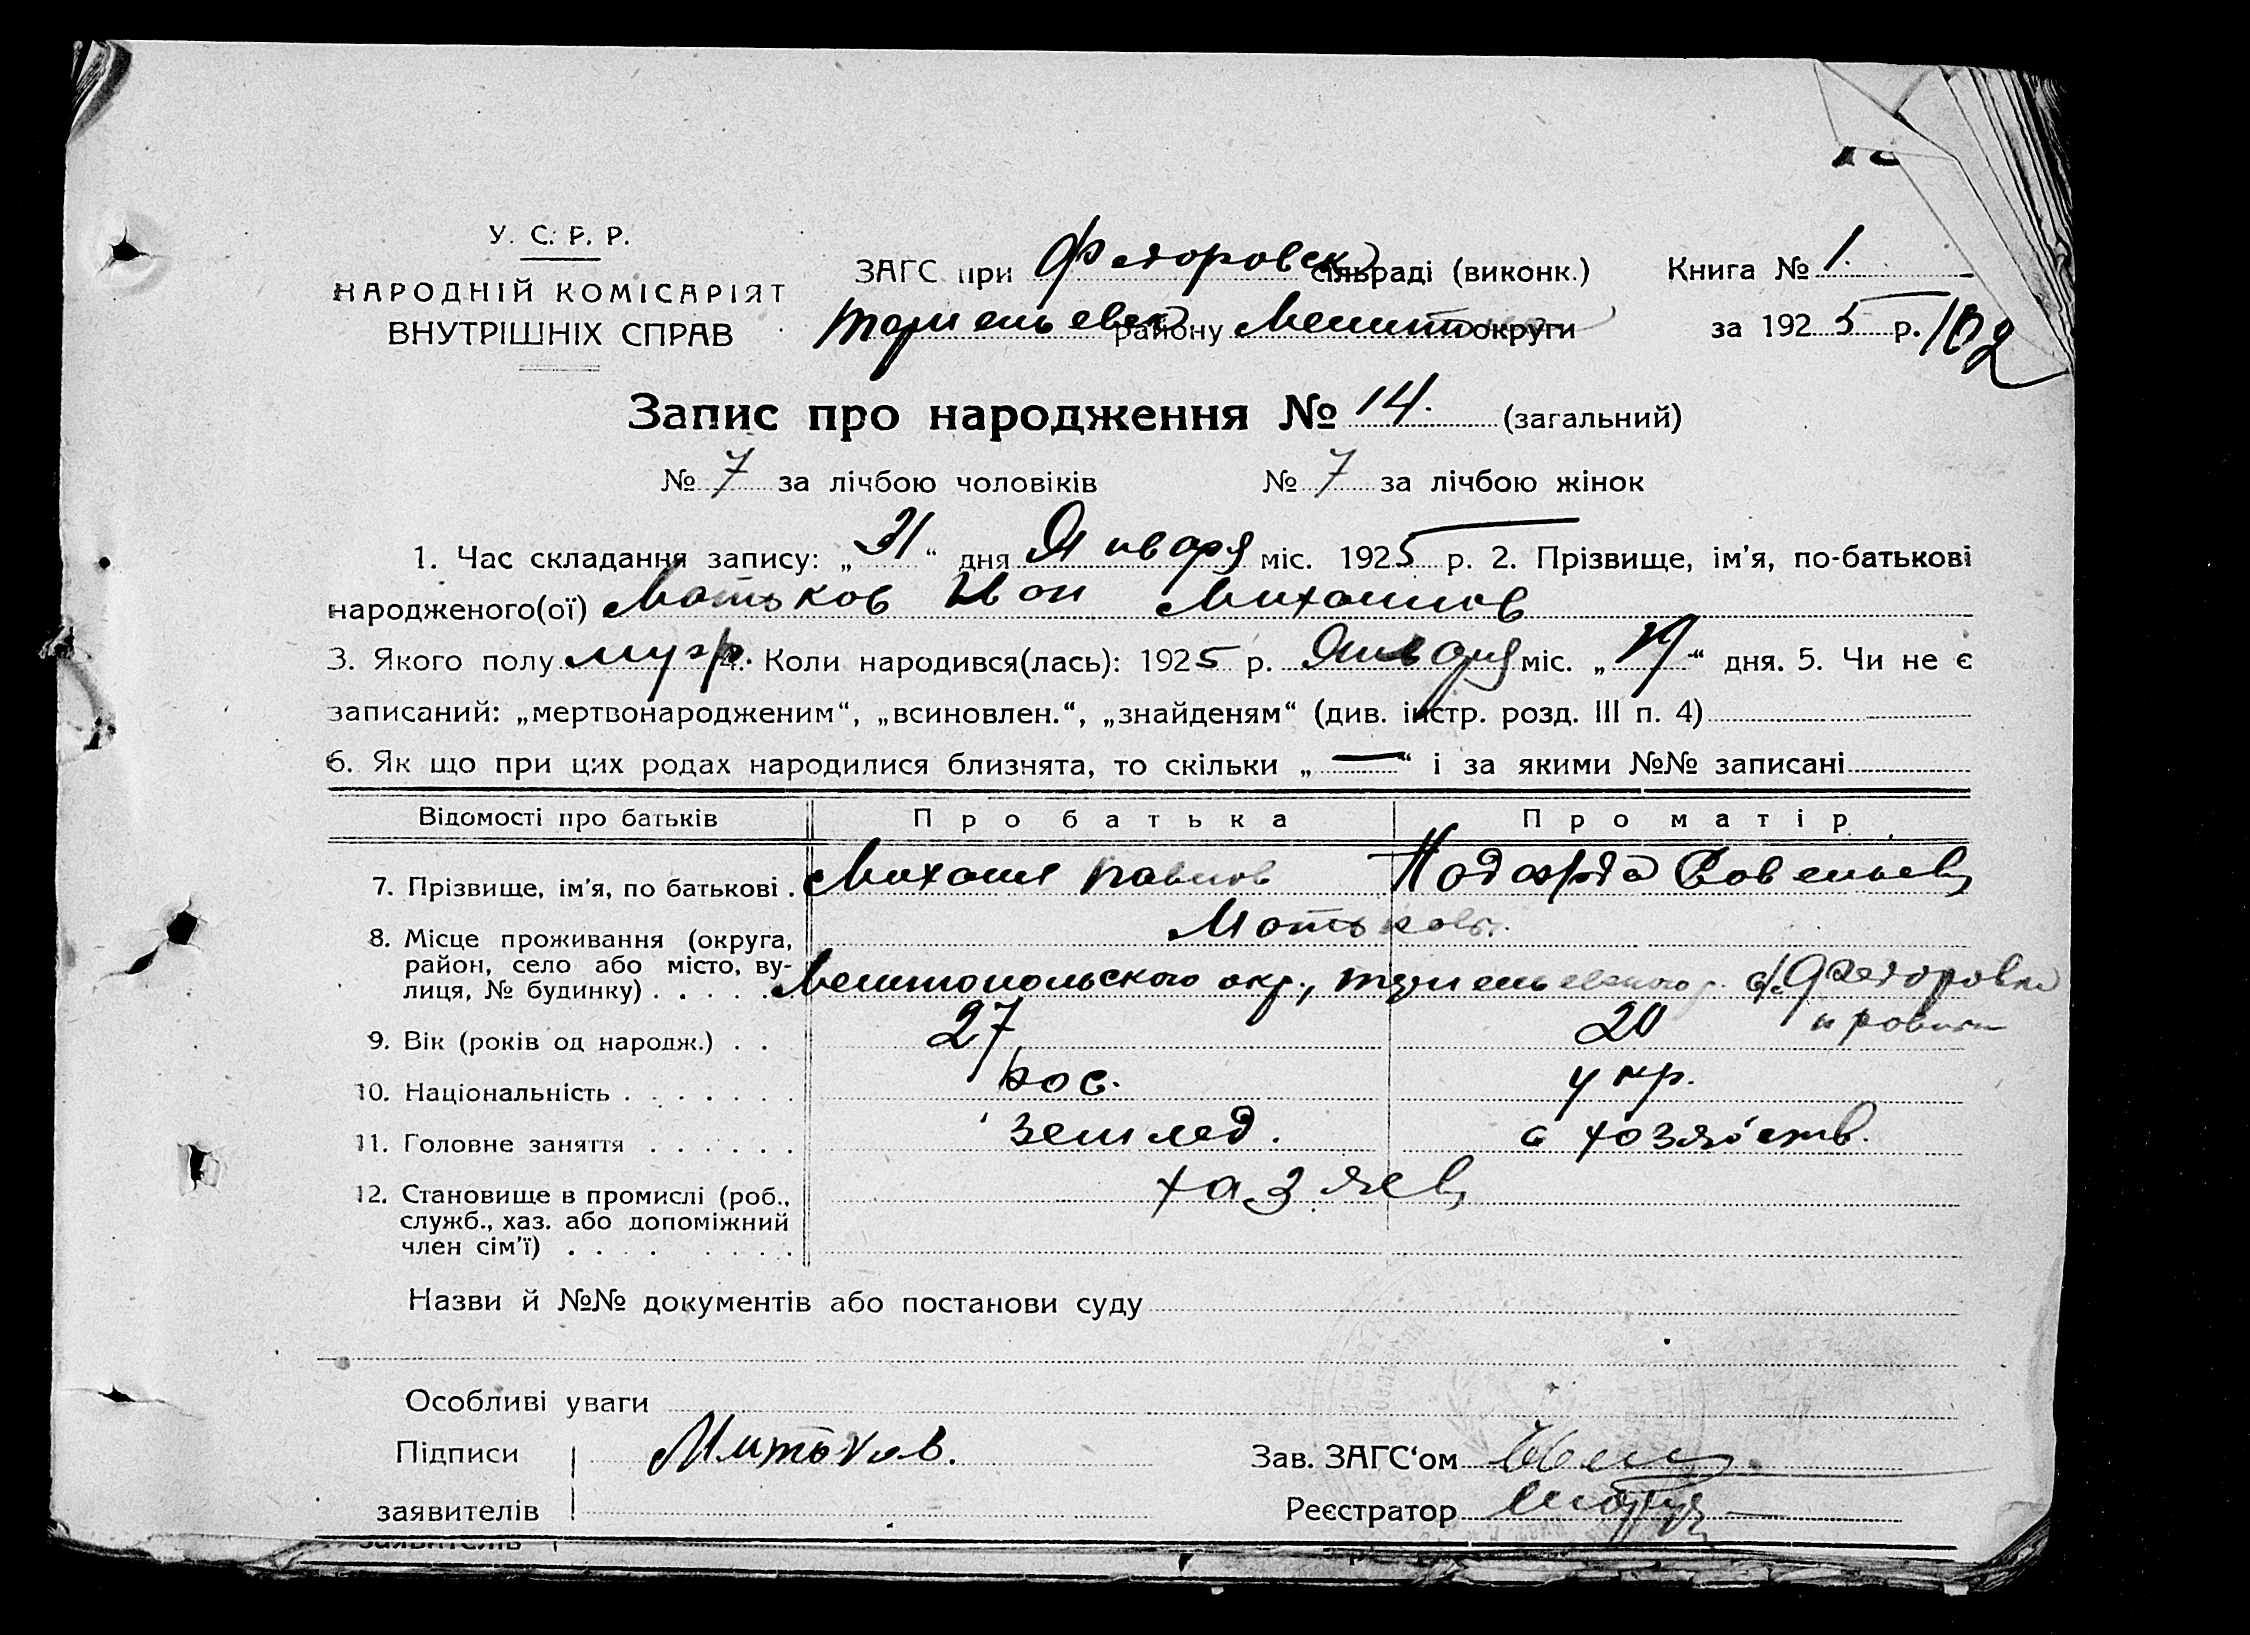 У. С. Р. Р.
НАРОДНІЙ КОМІСАРІЯТ
ВНУТРІШНІХ СПРАВ
ЗАГС при Федоровск сільраді (виконк.) Книга № 1.
району Мелитоп округи за 1925 р. 102
Запис про народження № 14. (загальний)
№ 7 за лічбою чоловіків № 7 за лічбою жінок
1. Час складання запису: „31“ дня Января міс. 1925 р. 2. Прізвище, ім’я, по-батькові
народженого(ої) Матьков Иван Михаилов
3. Якого полу муж. 4. Коли народився(лась): 1925 р. Января міс. „ “ дня. 5. Чи не є
записаний: „мертвонародженим“, „всиновлен.“, „знайденям“ (див. інстр. розд. III п. 4)
6. Як що при цих родах народилися близнята, то скільки „—“ і за якими №№ записані
Відомості про батьків Про батька Про матір
7. Прізвище, ім’я, по батькові . Михаил Павлов Савельев
Матьков
8. Місце проживання (округа,
район, село або місто, ву-
лиця, № будинку) . . . . . Мелитопольского окр., с. Федоровка
9. Вік (років од народж.) . . 27 20
10. Національність . . . . . . . рос. укр.
11. Головне заняття . . . . . . землед. хозяйств.
12. Становище в промислі (роб., хазяев
служб., хаз. або допоміжний
член сім’ї) . . . . . . . .
Назви й №№ документів або постанови суду
Особливі уваги
Підписи Матьков. Зав. ЗАГС‘ом
заявителів Реєстратор
заявителів